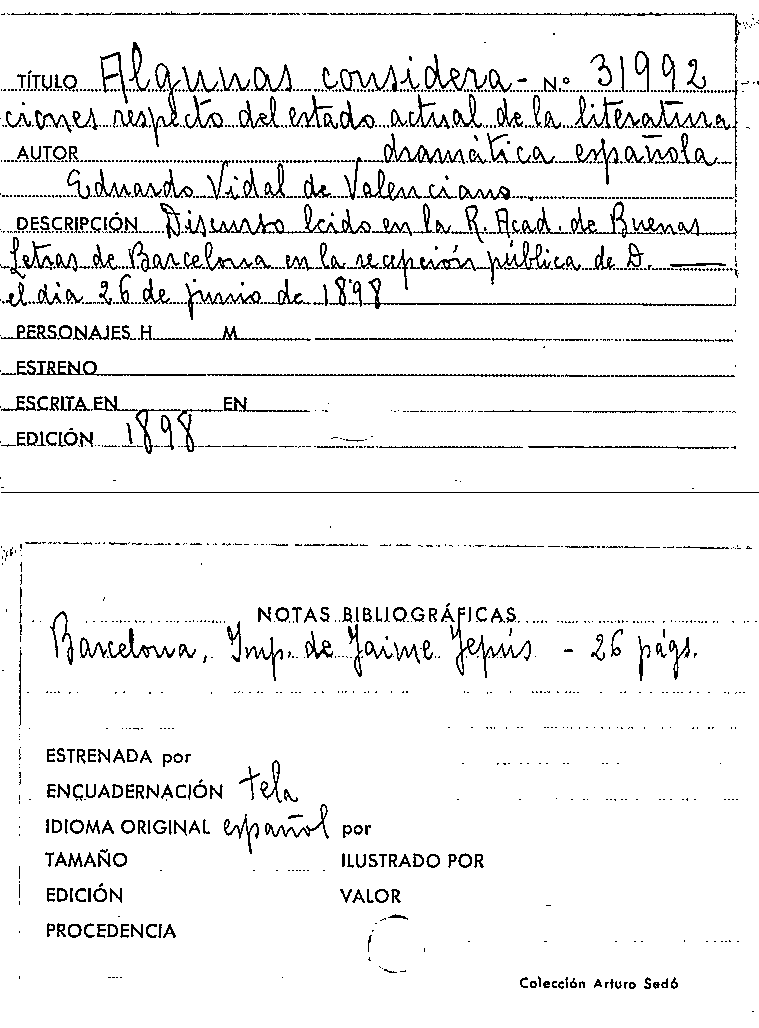 TÍTULO Algunas considera- N.º 31992
ciones respecto del estado actual de la literatura
AUTOR dramática española
Eduardo Vidal de Valenciano.
DESCRIPCIÓN Discurso leido en la R. Acad. de Buenas
Letras de Barcelona en la recepción pública de D. ——
el dia 26 de junio de 1898
PERSONAJES H M
ESTRENO
ESCRITA EN EN
EDICIÓN 1898
NOTAS BIBLIOGRÁFICAS
Barcelona, Imp. de Jaime Jepús - 26 págs.
ESTRENADA por
ENCUADERNACIÓN tela
IDIOMA ORIGINAL español por
TAMAÑO ILUSTRADO POR
EDICIÓN VALOR
PROCEDENCIA
Colección Arturo Sedó